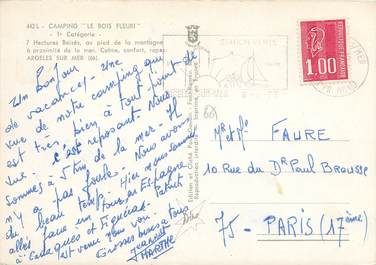 443 L - CAMPING "LE BOIS FLEURI"
- 1e Catégorie -
7 Hectares Boisés, au pied de la montagne
à proximité de la mer. Calme, confort, repos.
ARGELES SUR MER (66)
Un Bonjour
de vacances. Une
vue de notre camping qui
est très bien à tout point de
vue. C'est reposant. Nous
sommes à 5 km de la mer. Il
n'y a pas foule. Nous avons
du beau temps. Hier nous sommes
allés faire un tour en Espagne
à Cadaquès et Figueras. Patrick
est venu
Grosses bises à tous
MARTHE
REPUBLIQUE FRANCAISE
1.00
(66)
Mr et Me FAURE
10 Rue du Dr Paul Brousse
75 - PARIS (17ème)